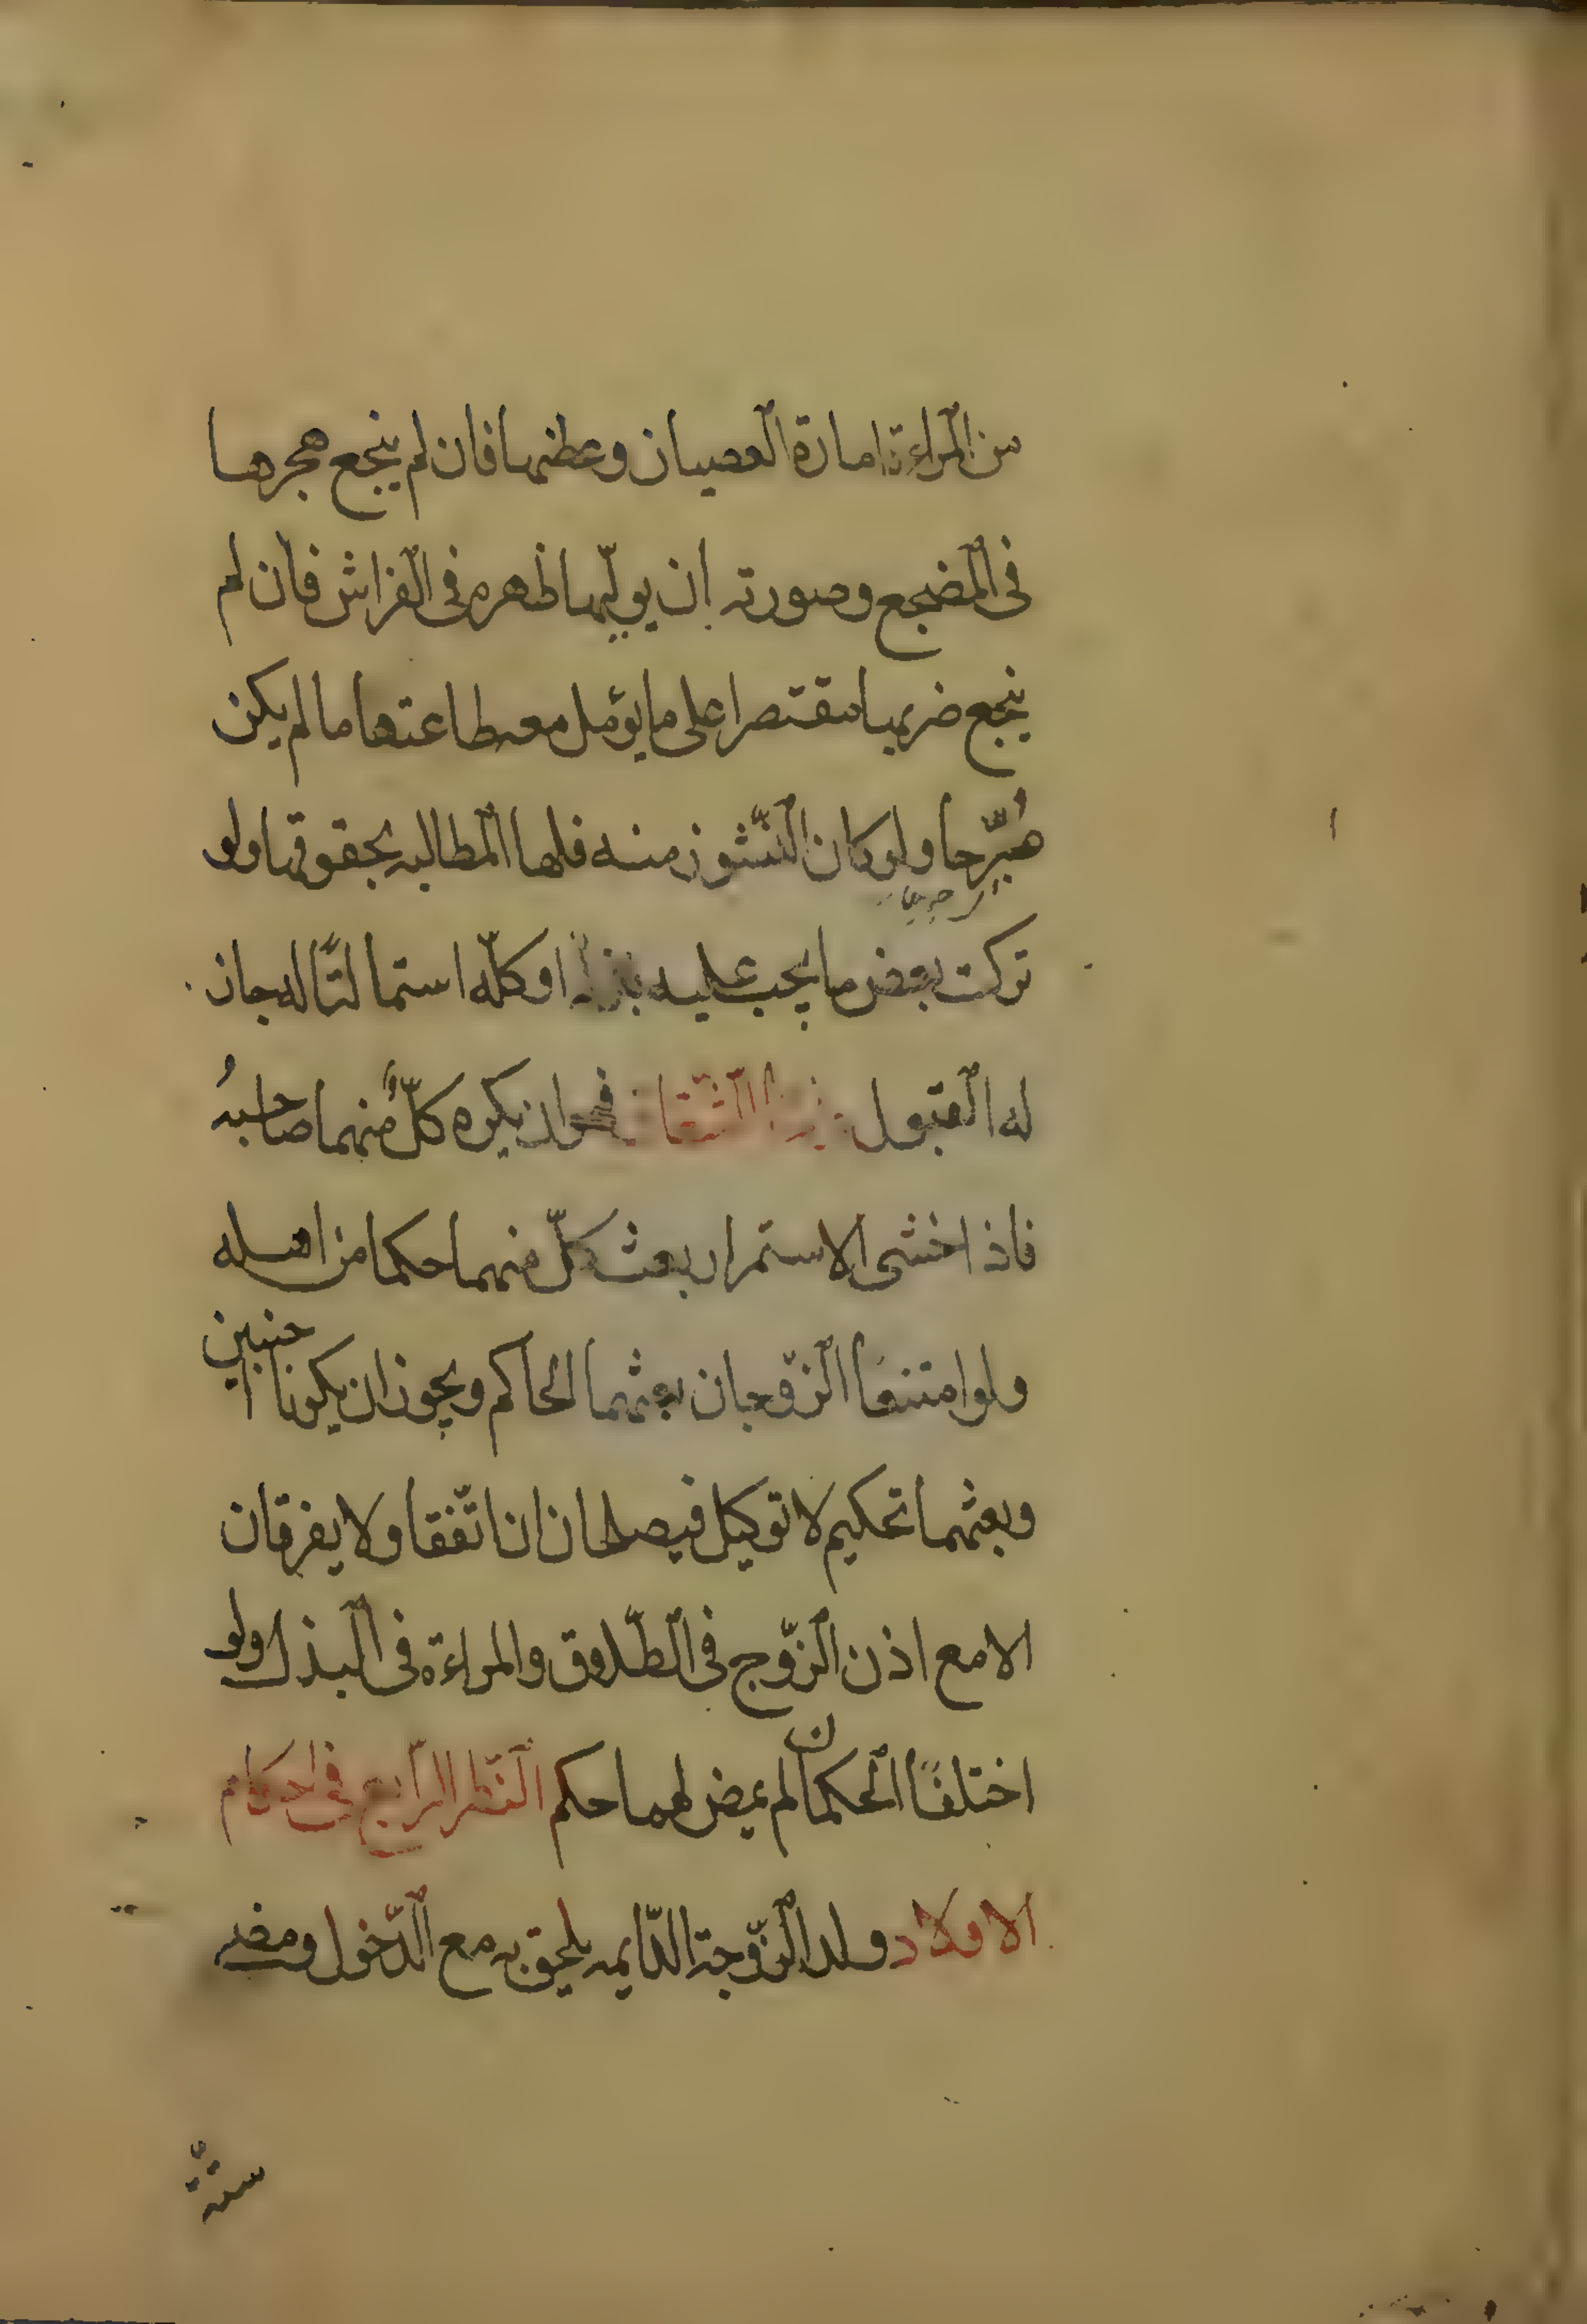 من المراءة امارة العصيان وعظها فان لم ينجع هجرها
فى المضجع وصورته ان يوليها ظهره فى الفراش فان لم
ينجع ضربها مقتصرا على ما يؤمل معه طاعتها ما لم يكن
مُبَرِّحا ولو كان النُّشوز منه فلها المطالبه بحقوقها ولو
تركت بعض ما يجب عليه او كلّه استمالتًا له جاز
له القبول واما الشّقاق فهو ان يكره كلٌّ منهما صاحبهُ
فاذا خشى الاستمرار بعث كلّ منهما حكما من اهله
ولو امتنعَا الزّوجان بعثهما الحاكم ويجوز ان يكونا اجنبين
وبعثهما تحكيم لا توكيل فيصلحان ان اتّفقا ولا يفرقان
الا مع اذن الزّوج فى الطّلاق والمراءة فى البذل ولو
اختلفَا الحكمان لم يمض لهما حكم النّظر الرّابع فى احكام
الاولاد ولد الزّوجة الدّايمه يلحق به مع الدّخول ومضى
ستّة